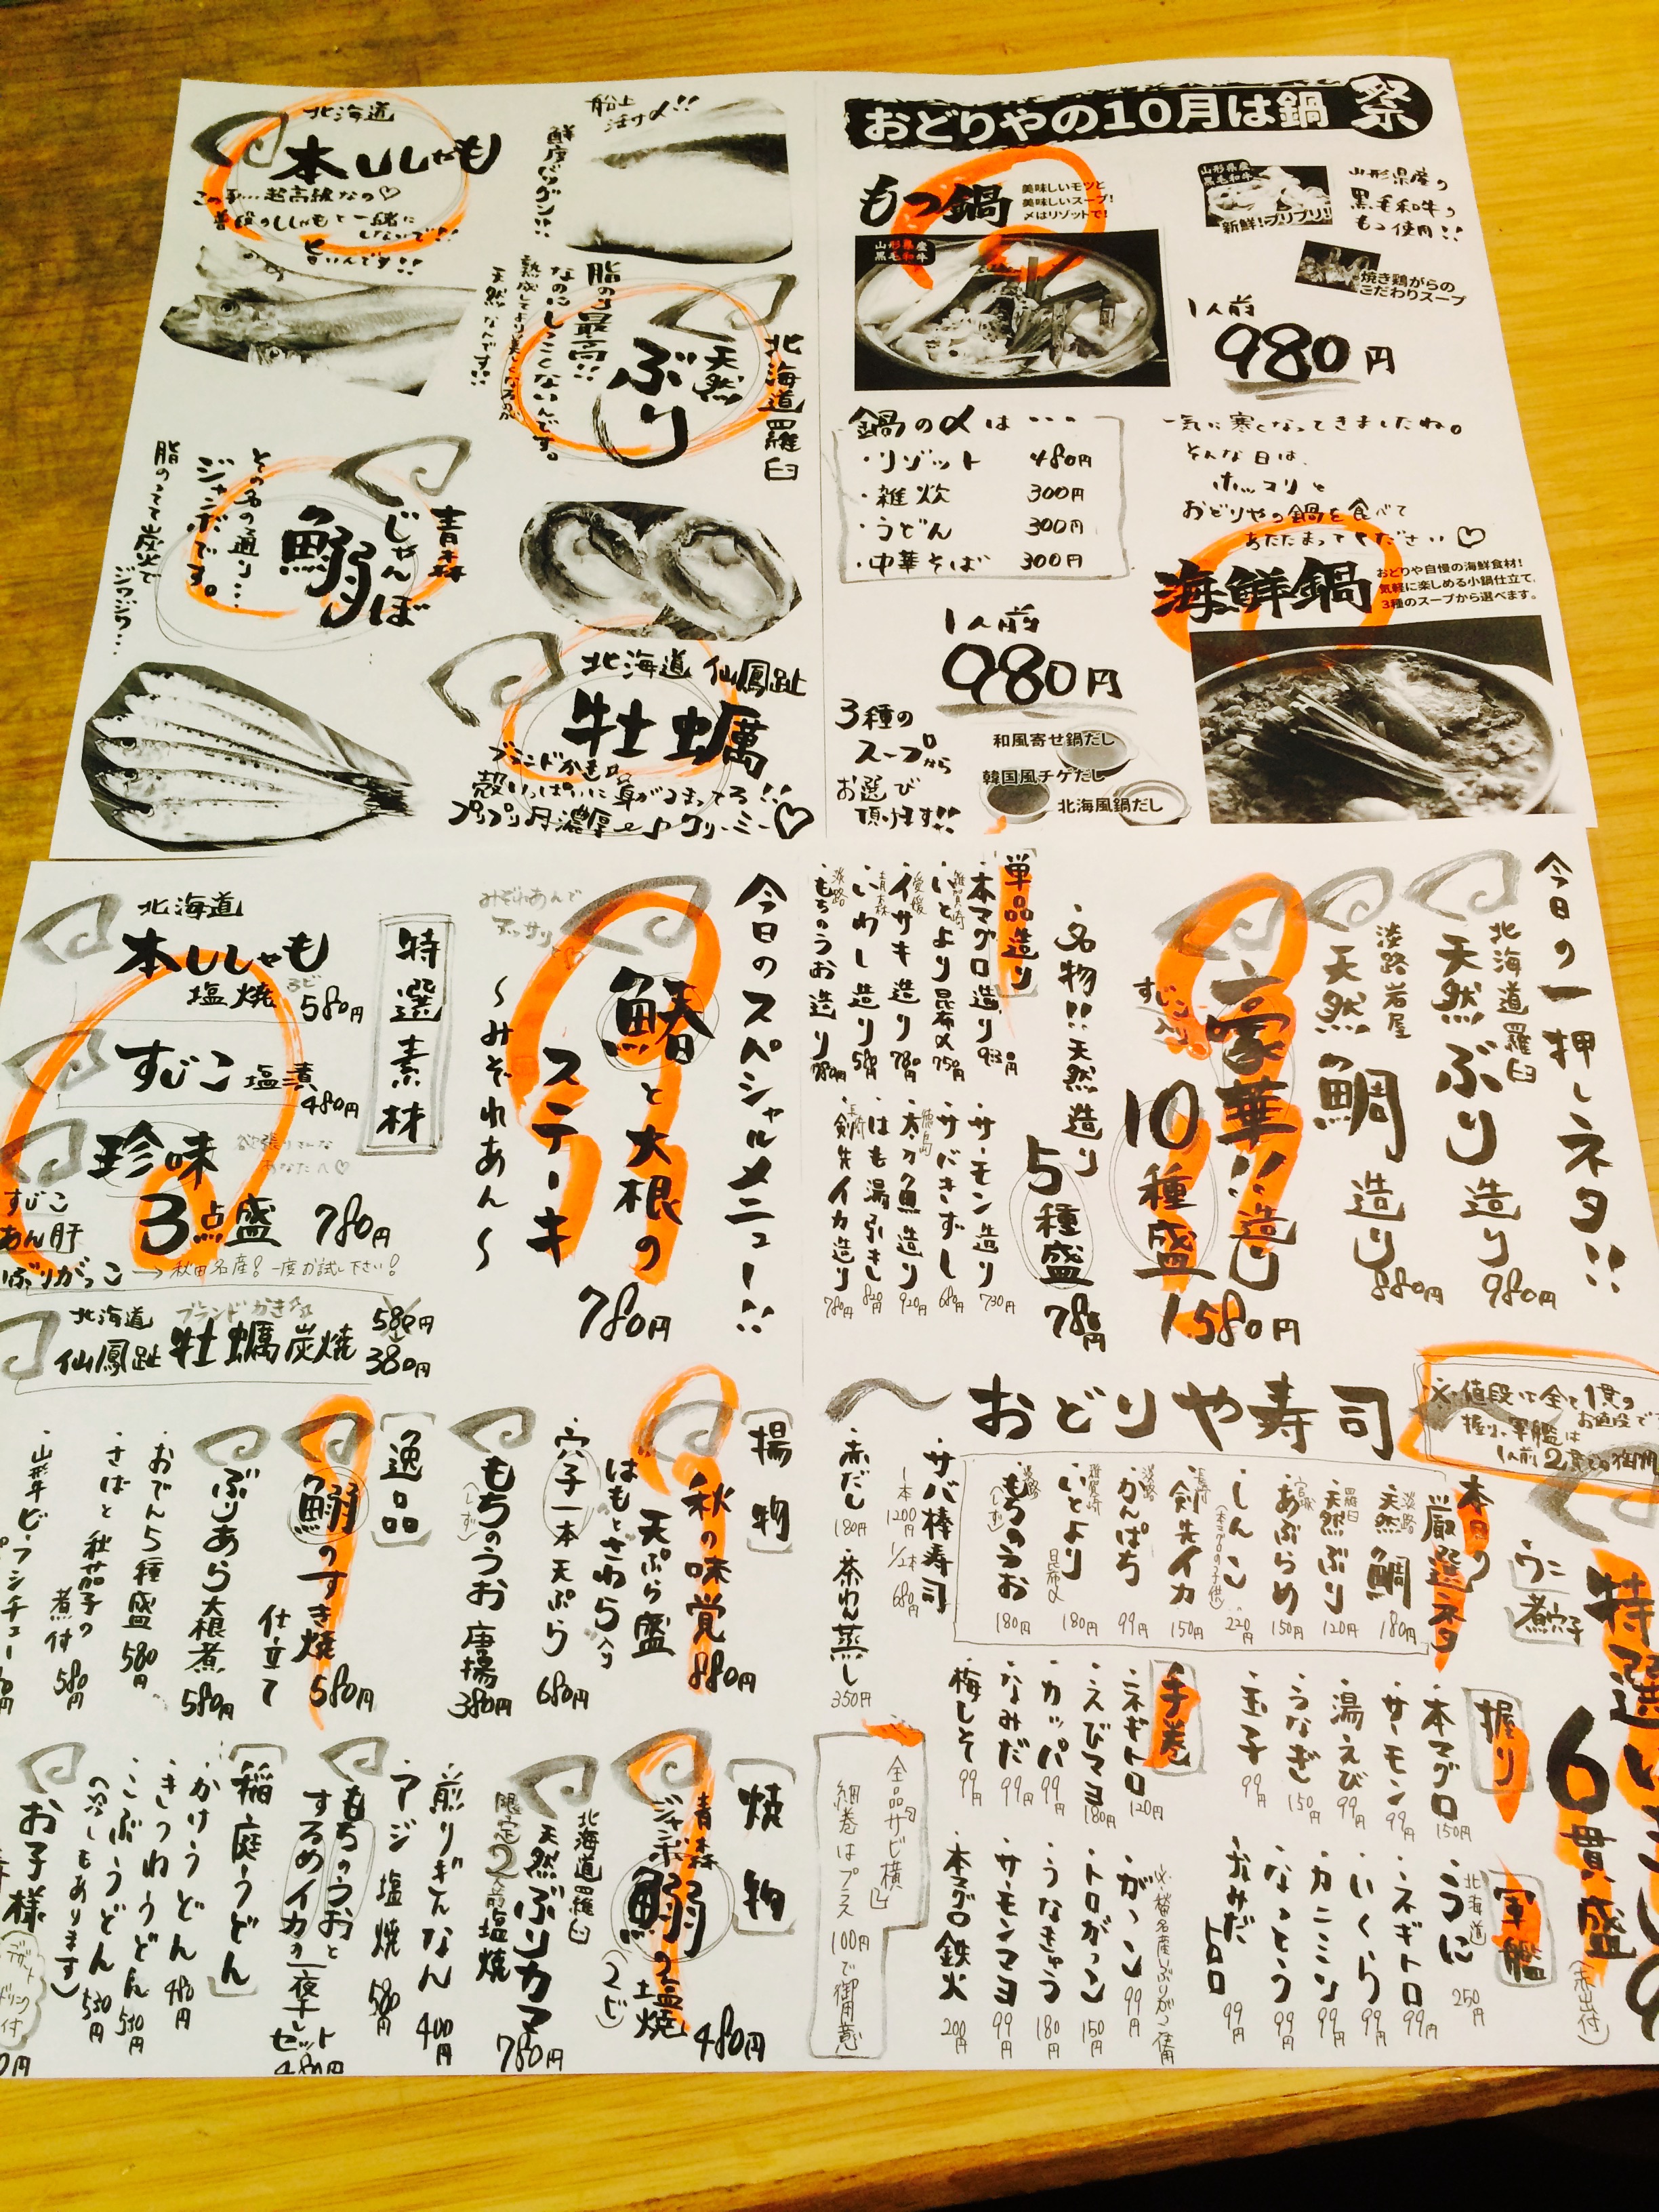 おどりやの10月は鍋祭
もつ鍋
美味しいモツと
美味しいスープ!
〆はリゾットで!
山形県産
黒毛和牛
山形県産
黒毛和牛
新鮮!プリプリ!
山形県産の
黒毛和牛の
もつ使用!!
焼き鶏がらの
こだわりスープ
1人前
980円
鍋の〆は・・・
・リゾット 480円
・雑炊 300円
・うどん 300円
・中華そば 300円
一気に寒くなってきましたね。
そんな日は、
ホッコリと
おどりやの鍋を食べて
あたたまってください♡
海鮮鍋
おどりや自慢の海鮮食材!
気軽に楽しめる小鍋仕立て。
3種のスープから選べます。
1人前
980円
3種の
スープから
お選び
頂けます!!
和風寄せ鍋だし
韓国風チゲだし
北海風鍋だし
北海道
本ししゃも
この子…超高級なの♡
普段のししゃもと一緒に
しないで!!
旨いんです!!
船上
活〆!!
鮮度バツグン!!
北海道羅臼
天然
ぶり
脂のり最高!!
なのにしつこくないんです。
天然なんです!!
青森
じゃんぼ
鰯
その名の通り…
ジャンボです。
脂のってて炭火で
ジワジワ…
北海道 仙鳳趾
牡蠣
ブランドかき
殻いっぱいに身がつまってる!!
プリプリ 濃厚 クリーミー♡
今日の一押しネタ!!
北海道羅臼
天然ぶり造り 980円
淡路岩屋
天然鯛造り 880円
豪華!!造り
すじこ入り
10種盛 1,580円
・名物!!天然造り
5種盛 780円
単品造り
・本マグロ造り 930円
・いとより昆布〆 750円
愛媛
・イサキ造り 780円
青森
・いわし造り 580円
淡路
・もちのうお造り 780円
・サーモン造り 730円
・サバきずし 680円
徳島
・太刀魚造り 920円
・はも湯引き 820円
長崎
・剣先イカ造り 780円
今日のスペシャルメニュー!!
鰆と大根の
ステーキ
〜みぞれあん〜
780円
みぞれあんで
アッサリと
特選素材
北海道
本ししゃも
塩焼 3ピ 580円
すじこ 塩漬 480円
珍味
3点盛 780円
欲張りさんな
あなたへ♡
すじこ
あん肝
いぶりがっこ→秋田名産!一度お試し下さい!
北海道 ブランドかき
仙鳳趾 牡蠣炭焼 580円
380円
おどりや寿司
※値段は全て1貫の
お値段です
握り、軍艦は
1人前2貫での御用
本日の
厳選ネタ
淡路
天然鯛 180円
羅臼
天然ぶり 120円
宮城
あぶらめ 150円
しんこ 220円
(本マグロの子供)
長崎
剣先イカ 150円
淡路
かんぱち 99円
いとより 昆布〆 180円
淡路
もちのうお 180円
(しず)
・サバ棒寿司
1本 1200円 1/2本 680円
・赤だし 180円
・茶わん蒸し 350円
特選
6貫盛
(赤出付)
うに
煮穴子
握り
・本マグロ 150円
・サーモン 99円
・湯えび 99円
・うなぎ 150円
・玉子 99円
手巻
・ネギトロ 120円
・えびマヨ 180円
・カッパ 99円
・なみだ 99円
・梅しそ 99円
軍艦
北海道
・うに 250円
・ネギトロ 99円
・いくら 99円
・カニミソ 99円
・なっとう 99円
・なみだトロロ 99円
・がっこ 99円
・トロがっこ 150円
・うなきゅう 180円
・サーモンマヨ 99円
・本マグロ鉄火 200円
細巻はプラス100円で御用意
揚物
秋の味覚
天ぷら盛 880円
はもときわら入り
・穴子一本天ぷら 680円
もちのうお唐揚 380円
(しず)
逸品
鰯のすき焼
仕立て 580円
ぶりあら大根煮 580円
・おでん5種盛 580円
・さばと秋茄子の
煮付 580円
・山形牛ビーフシチュー
焼物
青森
ジャンボ鰯の塩焼 480円
(2ピ)
北海道羅臼
天然ぶりカマ
塩焼 780円
煎りぎんなん 400円
アジ塩焼 580円
もちのうおと
するめイカの一夜干し
セット
480円
稲庭うどん
・かけうどん 480円
・きつねうどん 510円
・こぶうどん 530円
(冷しもあります)
お子様
デザート
ドリンク
付